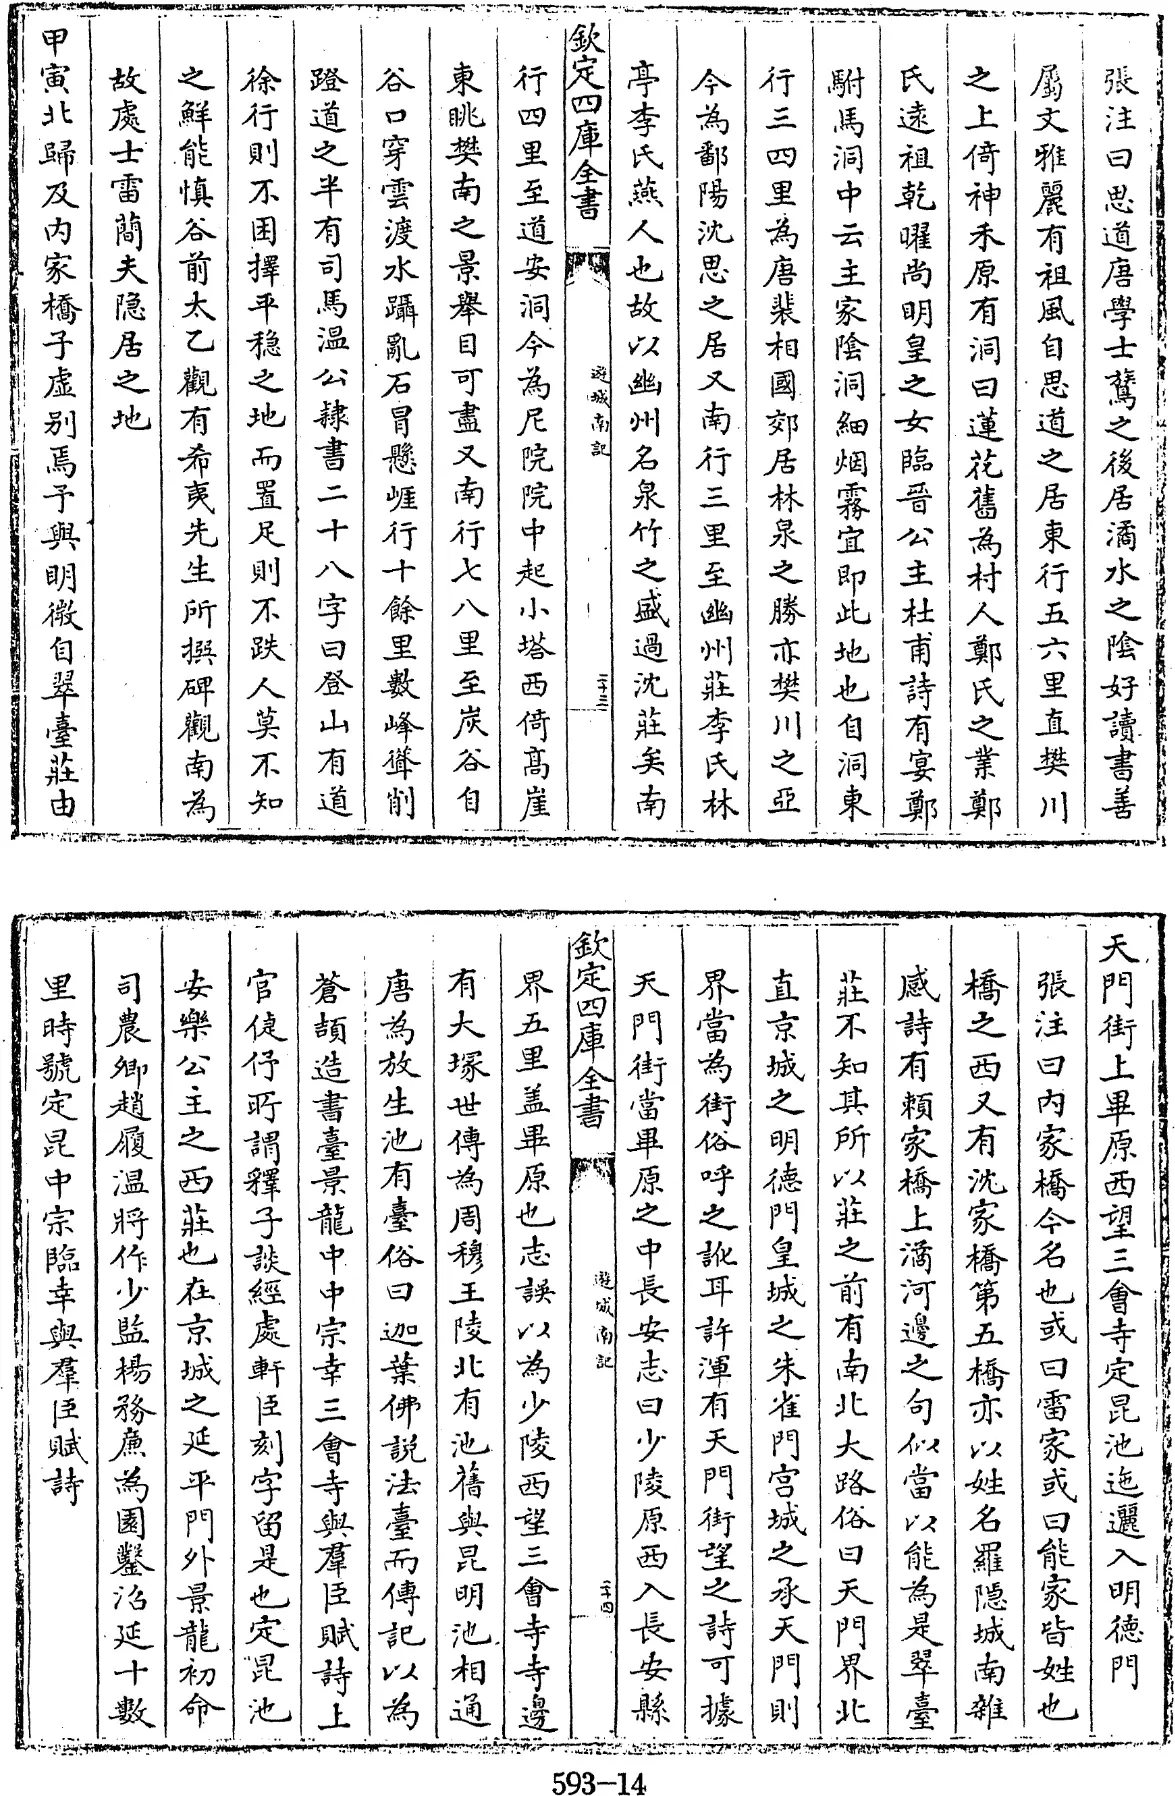 張注曰思道唐學士鷟之後居潏水之陰好讀書善
屬文雅麗有祖風自思道之居東行五六里直樊川
之上倚神禾原有洞曰蓮花舊為村人鄭氏之業鄭
氏遠祖乾曜尚明皇之女臨晉公主杜甫詩有宴鄭
駙馬洞中云主家陰洞細烟霧宜即此地也自洞東
行三四里為唐裴相國郊居林泉之勝亦樊川之亞
今為鄱陽沈思之居又南行三里至幽州莊李氏林
亭李氏燕人也故以幽州名泉竹之盛過沈莊矣南
欽定四庫全書
遊城南記
二十三
行四里至道安洞今為尼院院中起小塔西倚高崖
東眺樊南之景舉目可盡又南行七八里至炭谷自
谷口穿雲渡水躡亂石冒懸崕行十餘里數峰聳削
蹬道之半有司馬溫公隸書二十八字曰登山有道
徐行則不困擇平穏之地而置足則不跌人莫不知
之鮮能慎谷前太乙觀有希夷先生所撰碑觀南為
故處士雷蕳夫隐居之地
甲寅北歸及内家橋子虚别焉予與明微自翠臺莊由
天門街上畢原西望三會寺定昆池迤邐入明德門
張注曰内家橋今名也或曰雷家或曰能家皆姓也
橋之西又有沈家橋第五橋亦以姓名羅隠城南雜
感詩有賴家橋上潏河邊之句似當以能為是翠臺
莊不知其所以莊之前有南北大路俗曰天門界北
直京城之明德門皇城之朱雀門宫城之承天門則
界當為街俗呼之訛耳許渾有天門街望之詩可據
天門街當畢原之中長安志曰少陵原西入長安縣
欽定四庫全書
遊城南記
二十四
界五里盖畢原也志誤以為少陵西望三會寺寺邊
有大塚世傳為周穆王陵北有池舊與昆明池相通
唐為放生池有臺俗曰迦葉佛説法臺而傳記以為
蒼頡造書臺景龍中中宗幸三會寺與羣臣賦詩上
官倢伃所謂釋子談經處軒臣刻字留是也定昆池
安樂公主之西莊也在京城之延平門外景龍初命
司農卿趙履溫將作少監楊務廉為園鑿沼延十數
里時號定昆中宗臨幸與羣臣賦詩
593-14